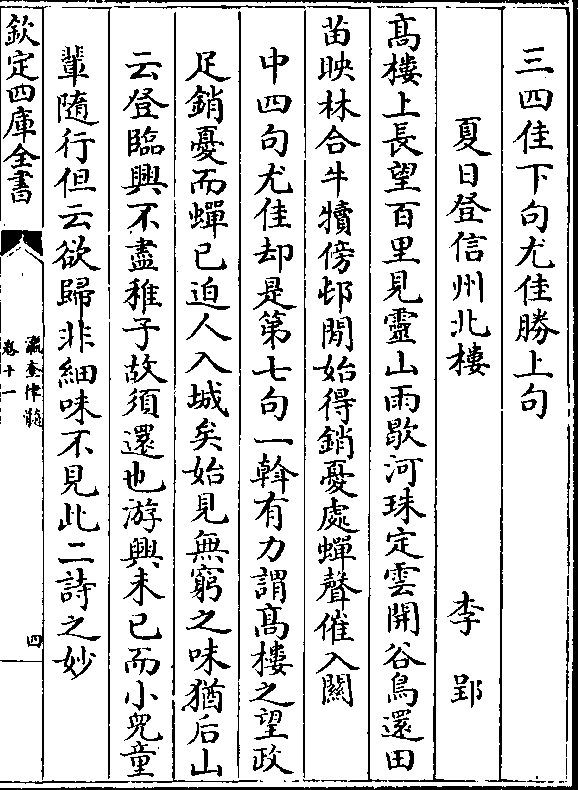 三四佳下句尤佳勝上句
夏日登信州北樓　李郢
髙樓上長望百里見靈山雨歇河珠定雲開谷鳥還田
苗映林合牛犢傍邨閒始得銷憂處蟬聲催入關
中四句尤佳却是第七句一斡有力謂髙樓之望政
足銷憂而蟬已迫人入城矣始見無窮之味猶后山
云登臨興不盡稚子故須還也游興未已而小兒童
輩隨行但云欲歸非細味不見此二詩之妙
欽定四庫全書
瀛奎律髓
卷十一
四